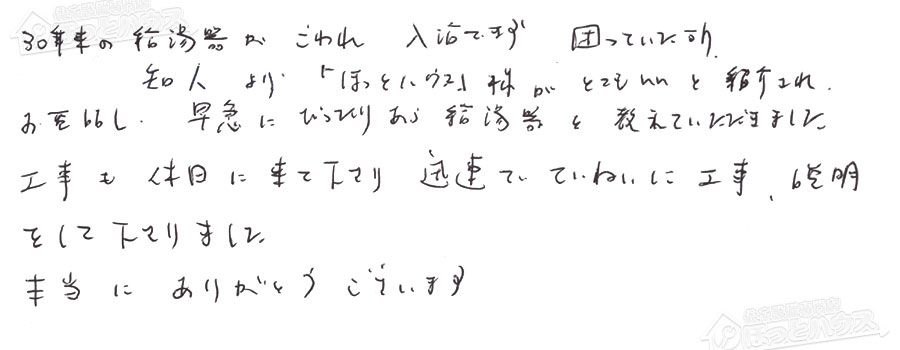 30年来の給湯器がこわれ 入浴できず 困っていた所
知人より「ほっとハウス」様がとてもいいと紹介され
お電話し、早急にぴったりあう給湯器を教えていただきました。
工事も休日に来て下さり 迅速でていねいに工事、説明
をして下さりました。
本当にありがとうございます
ほっとハウス